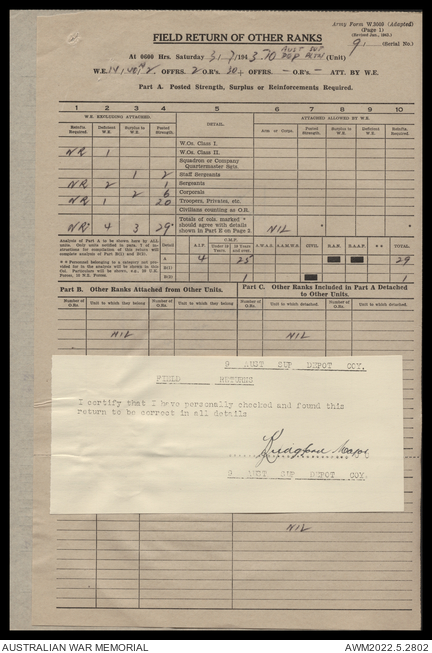 Army Form W.3009 (Adapted)
(Page 1)
(Revised Jan., 1943.)
FIELD RETURN OF OTHER RANKS
91 (Serial No.)
At 0600 Hrs. Saturday 31/7/1943. 70 AUST SUP DEP PLTN (Unit)
OFFRS. 2 O.R's. 30+ OFFRS. — O.R's — ATT. BY W.E.
Part A. Posted Strength, Surplus or Reinforcements Required.
1 2 3 4 5 6 7 8 9 10
W.E. EXCLUDING ATTACHED. DETAIL ATTACHED ALLOWED BY W.E.
Reinfts. Required. Deficient W.E. Surplus to W.E. Posted Strength. Arm or Corps. Posted Strength. Surplus to W.E. Deficient W.E. Reinfts. Required.
W.Os. Class I.
NR 1 W.Os. Class II.
Squadron or Company Quartermaster Sgts.
1 2 Staff Sergeants
NR 2 1 Sergeants
2 6 Corporals
NR 1 20 Troopers, Privates, etc.
Civilians counting as O.R.
NR* 4 3 29* Totals of cols. marked * should agree with details shown in Part E on Page 2. NIL * *
Analysis of Part A to be shown here by ALL units.
Detail A.I.F. C.M.F. Under 19 Years 19 Years and over. A.W.A.S. A.A.M.W.S. CIVIL R.A.N. R.A.A.F. ** TOTAL
A 4 25 29
B(i)
B(ii) 1 1
Part B. Other Ranks Attached from Other Units. Part C. Other Ranks Included in Part A Detached to Other Units.
Number of O.Rs. Unit to which they belong Number of O.Rs. Unit to which they belong Number of O.Rs. Unit to which detached. Number of O.Rs. Unit to which detached.
NIL NIL
9 AUST SUP DEPOT COY.
FIELD RETURNS
I certify that I have personally checked and found this
return to be correct in all details
Major
9 AUST SUP DEPOT COY.
NIL
AUSTRALIAN WAR MEMORIAL AWM2022.5.2802